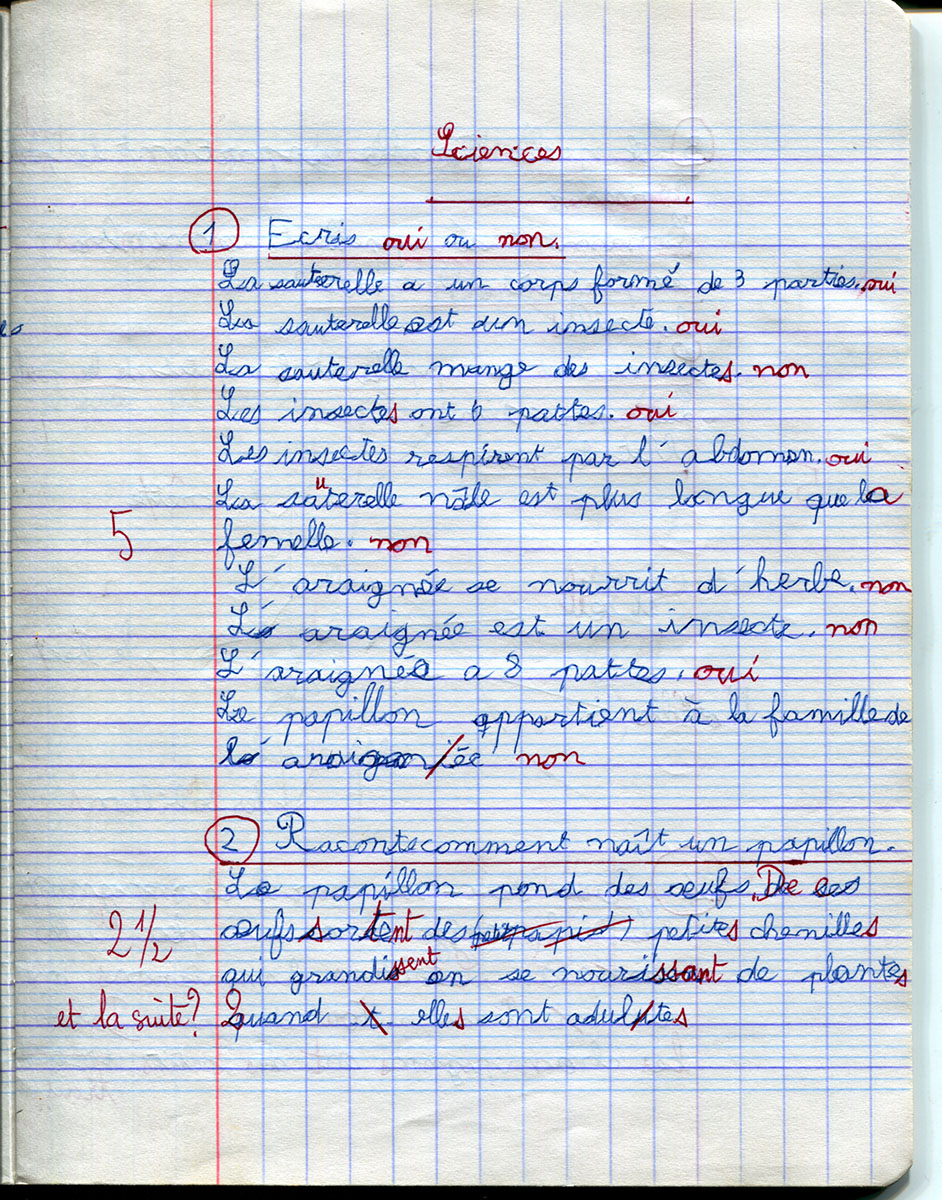 Sciences
1 Ecris oui ou non.
La sauterelle a un corps formé de 3 parties. oui
La sauterelle est un insecte. oui
La sauterelle mange des insectes. non
Les insectes ont 6 pattes. oui
Les insectes respirent par l'abdomen. oui
La sauterelle mâle est plus longue que la
femelle. non
L'araignée se nourrit d'herbe. non
L'araignée est un insecte. non
L'araignée a 8 pattes. oui
Le papillon appartient à la famille de
l'araignée non
5
2 Raconte comment naît un papillon.
Le papillon pond des œufs. De ces
œufs sortent des petites chenilles
qui grandissent en se nourissant de plantes
Quand elles sont adultes
2 1/2
et la suite?